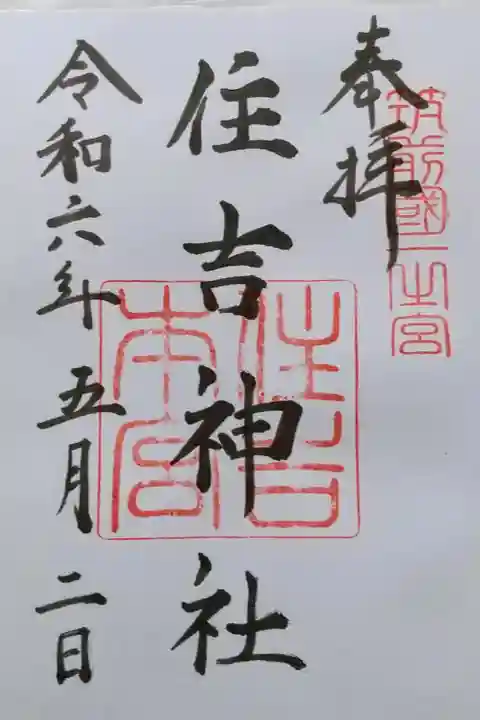 奉拝
筑前國一之宮
住吉神社
住吉本宮
令和六年五月二日